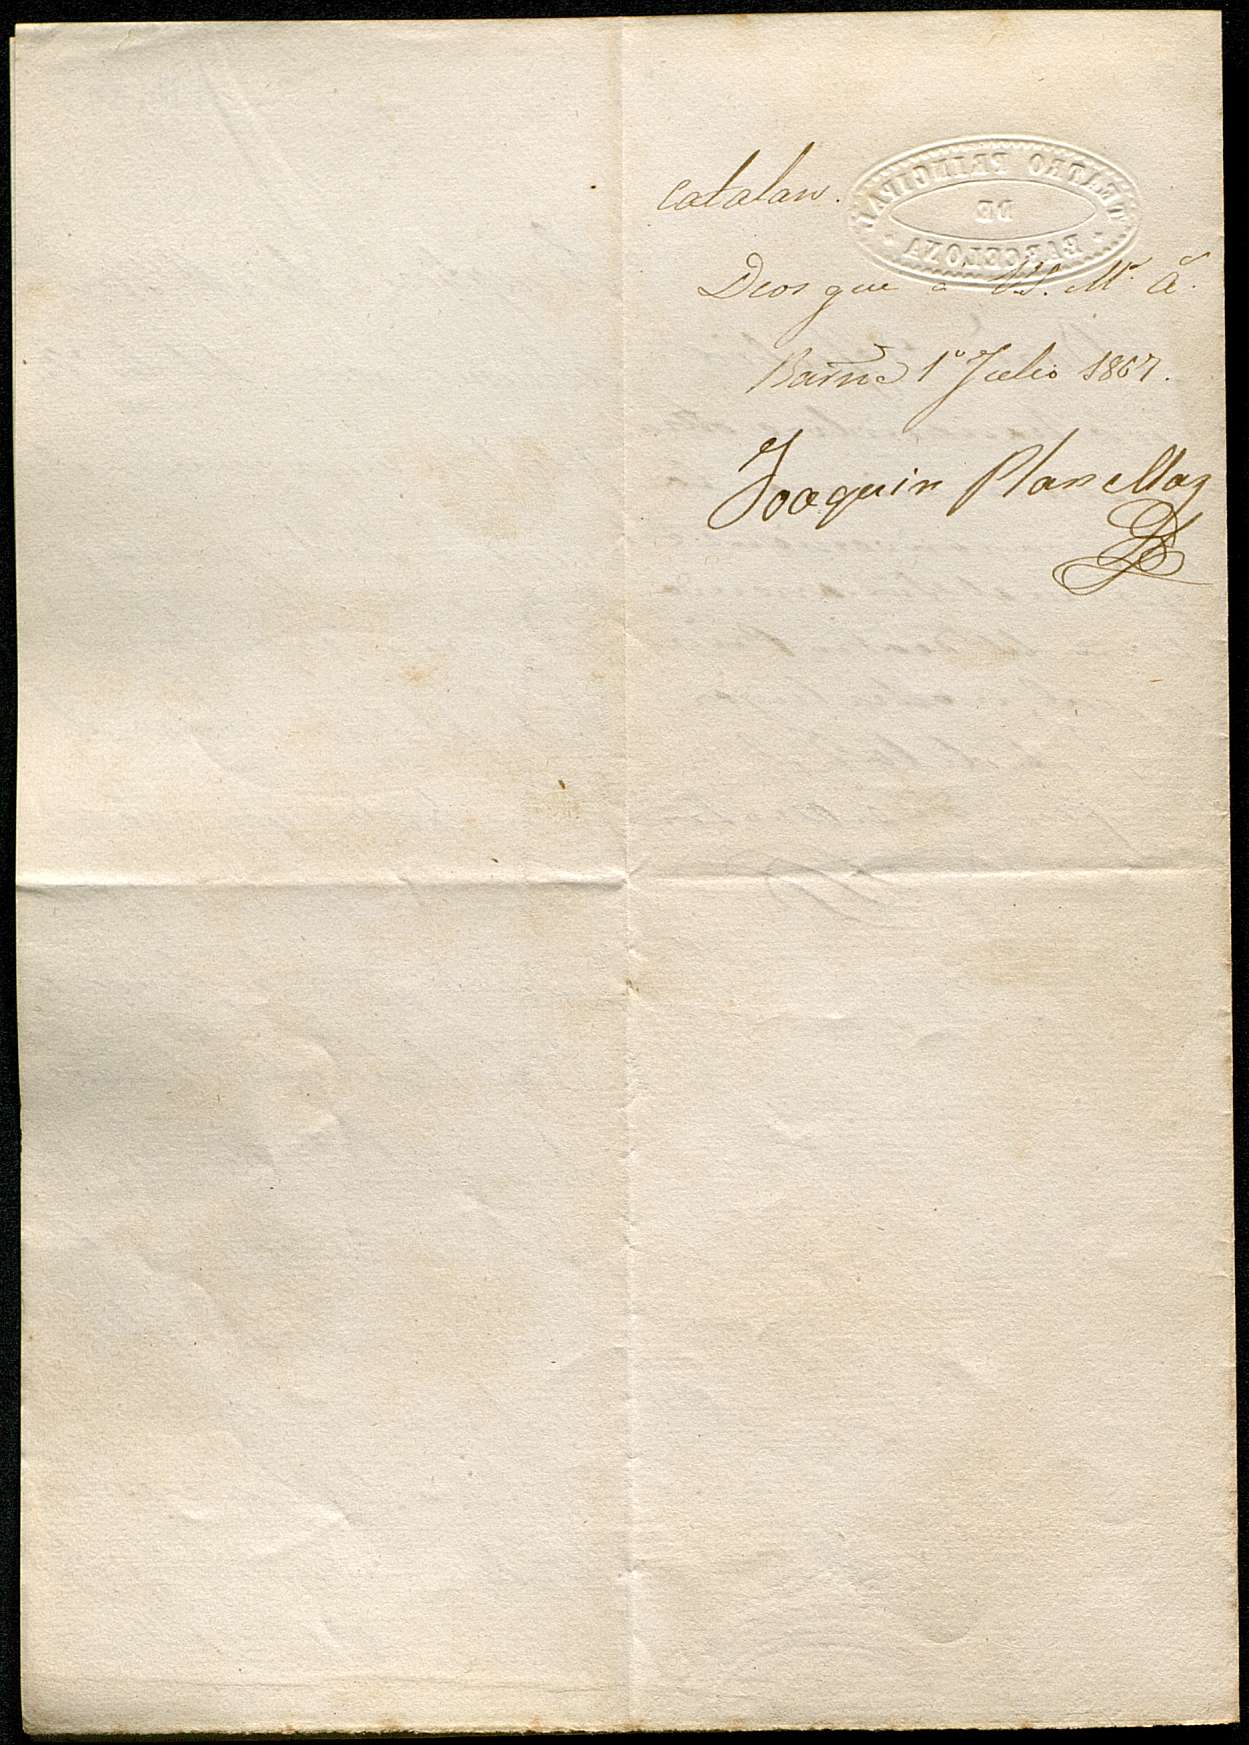 TEATRO PRINCIPAL
DE
BARCELONA
catalan.
Dios gue a VS. Ms. As.
Barna 1º Julio 1867.
Joaquin Planellas